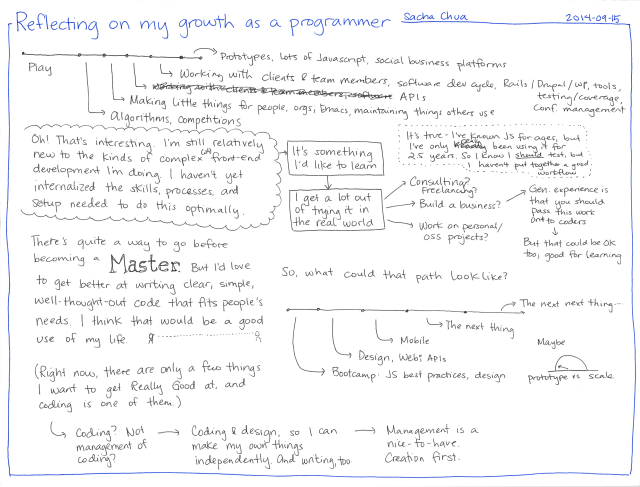 Reflecting on my growth as a programmer
Sacha Chua
2014-09-15
Play
Prototypes, lots of Javascript, social business platforms
Working with clients & team members, software dev cycle, Rails/Drupal/WP, tools,
testing/coverage,
conf. management
Working with clients & team members, software APIs
Making little things for people, orgs; Emacs, maintaining things others use
Algorithms, Competitions
Oh! That's interesting. I'm still relatively
new to the kinds of complex front-end
development I'm doing. I haven't yet
internalized the skills, processes, and
setup needed to do this optimally.
It's something
I'd like to learn
I get a lot out
of trying it in
the real world
It's true - I've known JS for ages, but
I've only been using it for
2.5 years. So I know I should test, but
I haven't put together a good
workflow
Consulting?
Freelancing?
Build a business?
Work on personal/
OSS projects?
Gen. experience is
that you should
pass this work
onto coders
But that could be OK
too, good for learning
There's quite a way to go before
becoming a Master. But I'd love
to get better at writing clear, simple,
well-thought-out code that fits people's
needs. I think that would be a good
use of my life.
(Right now, there are only a few things
I want to get Really Good at, and
coding is one of them.)
So, what could that path look like?
The next next thing...
The next thing
Mobile
Design, Web APIs
Bootcamp: JS best practices, design
Maybe
prototype vs scale
Coding? Not
management of
coding?
Coding & design, so I can
make my own things
independently. And writing, too
Management is a
nice-to-have.
Creation first.